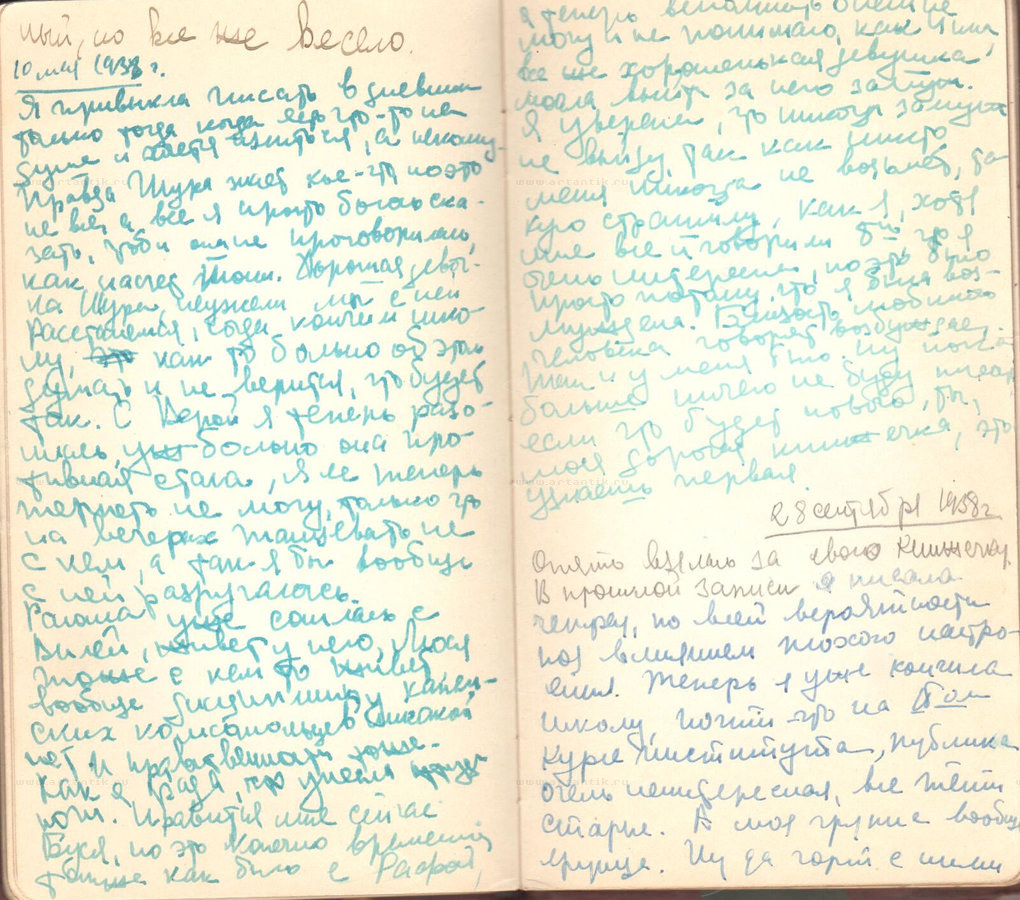 ный, но все же весело.
10 мая 1938 г.
Я привыкла писать в дневник
только тогда когда есть что-то на
душе и хочется излиться, а некому.
Правда Шура знает кое-что но это
не все а все я просто боюсь ска-
зать, чтобы она не проговорилась,
как насчет Тони. Хорошая девч-
ка Шура, неужели мы с ней
расстанемся, когда кончим шко-
лу, как то больно об этом
думать и не верится, что будет
так. С Верой я теперь разо-
шлась, уж больно она про-
тивная стала, я ее теперь
терпеть не могу, только что
на вечерах танцевать не
с кем, а так я бы вообще
с ней разругалась.
уже сошлась с
живет у него, Люся
тоже с кем то живет
вообще дисциплины
ских комсомольцев высокой
нет и нравственности тоже.
Как я рада, что унесла
ноги. Нравится мне сейчас
но это конечно временно
также как было с
я теперь вспомнить о нем не
могу и не понимаю, как
все же хорошенькая девушка
могла выйти за него замуж.
Я уверена, что никогда замуж
не выйду, так как никто
меня никогда не возьмет, та-
кую страшилу, как я, хотя
мне все и говорили что я
очень интересна, но это было
просто потому, что я была воз-
муждена. Близость любимого
человека говорят возбуждает
так и у меня было. Ну пока
больше ничего не буду писать
если что будет нового, ты,
моя дорогая книжечка, это
узнаешь первая.
28 сентября 1938 г.
Опять взялась за свою книжечку.
В прошлой записи я писала
чепуху, по всей вероятности
под влиянием плохого настро-
ения. Теперь я уже кончила
школу, почти что на
курсе института, публика
очень неинтересная, все почти
старье. В моя группе вообще
Ну да черт с ними